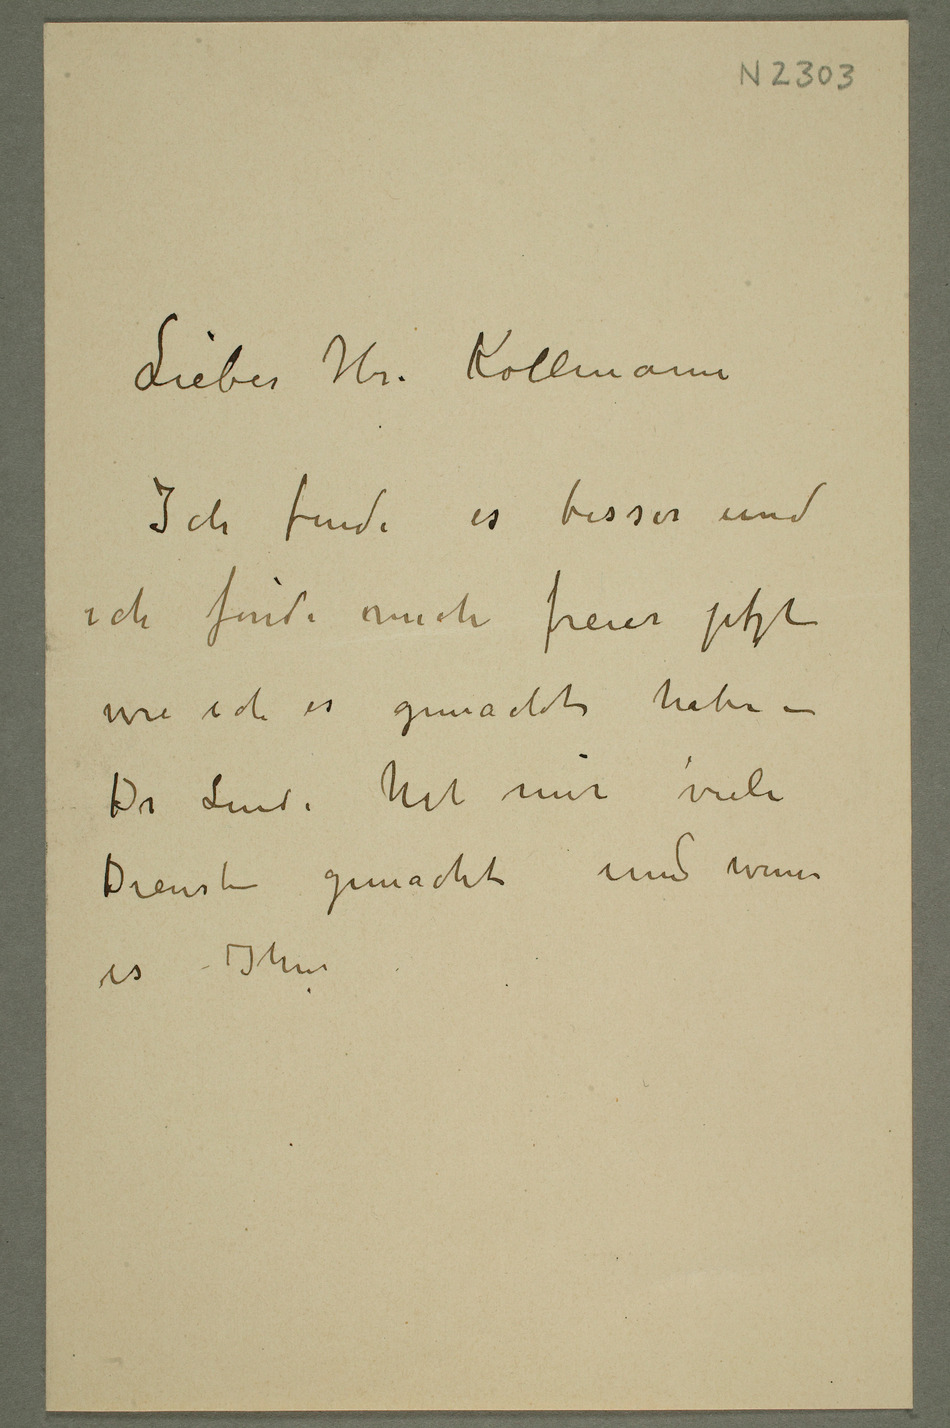 N 2303
Lieber Hr. Kollmann
Ich finde es besser und
ich finde mich freier jetzt
wie ich es gemacht habe –
Dr Linde hat mir viele
Dienste gemacht und wenn
es Ihnen